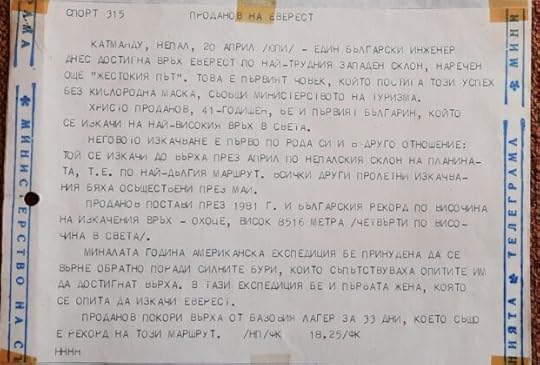 СПОРТ 315 ПРОДАНОВ НА ЕВЕРЕСТ
КАТМАНДУ, НЕПАЛ, 20 АПРИЛ /КПИ/ - ЕДИН БЪЛГАРСКИ ИНЖЕНЕР
ДНЕС ДОСТИГНА ВРЪХ ЕВЕРЕСТ ПО НАЙ-ТРУДНИЯ ЗАПАДЕН СКЛОН, НАРЕЧЕН
ОЩЕ "ЖЕСТОКИЯ ПЪТ". ТОВА Е ПЪРВИЯТ ЧОВЕК, КОЙТО ПОСТИГА ТОЗИ УСПЕХ
БЕЗ КИСЛОРОДНА МАСКА, СЪОБЩИ МИНИСТЕРСТВОТО НА ТУРИЗМА.
ХРИСТО ПРОДАНОВ, 41-ГОДИШЕН, БЕ И ПЪРВИЯТ БЪЛГАРИН, КОЙТО
СЕ ИЗКАЧИ НА НАЙ-ВИСОКИЯ ВРЪХ В СВЕТА.
НЕГОВОТО ИЗКАЧВАНЕ Е ПЪРВО ПО РОДА СИ И В ДРУГО ОТНОШЕНИЕ:
ТОЙ СЕ ИЗКАЧИ ДО ВЪРХА ПРЕЗ АПРИЛ ПО НЕПАЛСКИЯ СКЛОН НА ПЛАНИНА-
ТА, Т.Е. ПО НАЙ-ДЪЛГИЯ МАРШРУТ. ВСИЧКИ ДРУГИ ПРОЛЕТНИ ИЗКАЧВА-
НИЯ БЯХА ОСЪЩЕСТВЕНИ ПРЕЗ МАЙ.
ПРОДАНОВ ПОСТАВИ ПРЕЗ 1981 Г. И БЪЛГАРСКИЯ РЕКОРД ПО ВИСОЧИНА
НА ИЗКАЧЕНИЯ ВРЪХ - ОХОЦЕ, ВИСОК 8516 МЕТРА /ЧЕТВЪРТИ ПО ВИСО-
ЧИНА В СВЕТА/.
МИНАЛАТА ГОДИНА АМЕРИКАНСКА ЕКСПЕДИЦИЯ БЕ ПРИНУДЕНА ДА СЕ
ВЪРНЕ ОБРАТНО ПОРАДИ СИЛНИТЕ БУРИ, КОИТО СЪПЪТСТВУВАХА ОПИТИТЕ ИМ
ДА ДОСТИГНАТ ВЪРХА. В ТАЗИ ЕКСПЕДИЦИЯ БЕ И ПЪРВАТА ЖЕНА, КОЯТО
СЕ ОПИТА ДА ИЗКАЧИ ЕВЕРЕСТ.
ПРОДАНОВ ПОКОРИ ВЪРХА ОТ БАЗОВИЯ ЛАГЕР ЗА 33 ДНИ, КОЕТО СЪЩО
Е РЕКОРД НА ТОЗИ МАРШРУТ. /НП/ФК 18.25/ФК
НННН
РАМА * МИНИСТЕРСТВО НА СЪ
МИНИ
ТЕЛЕГРАМА
НИЯТА